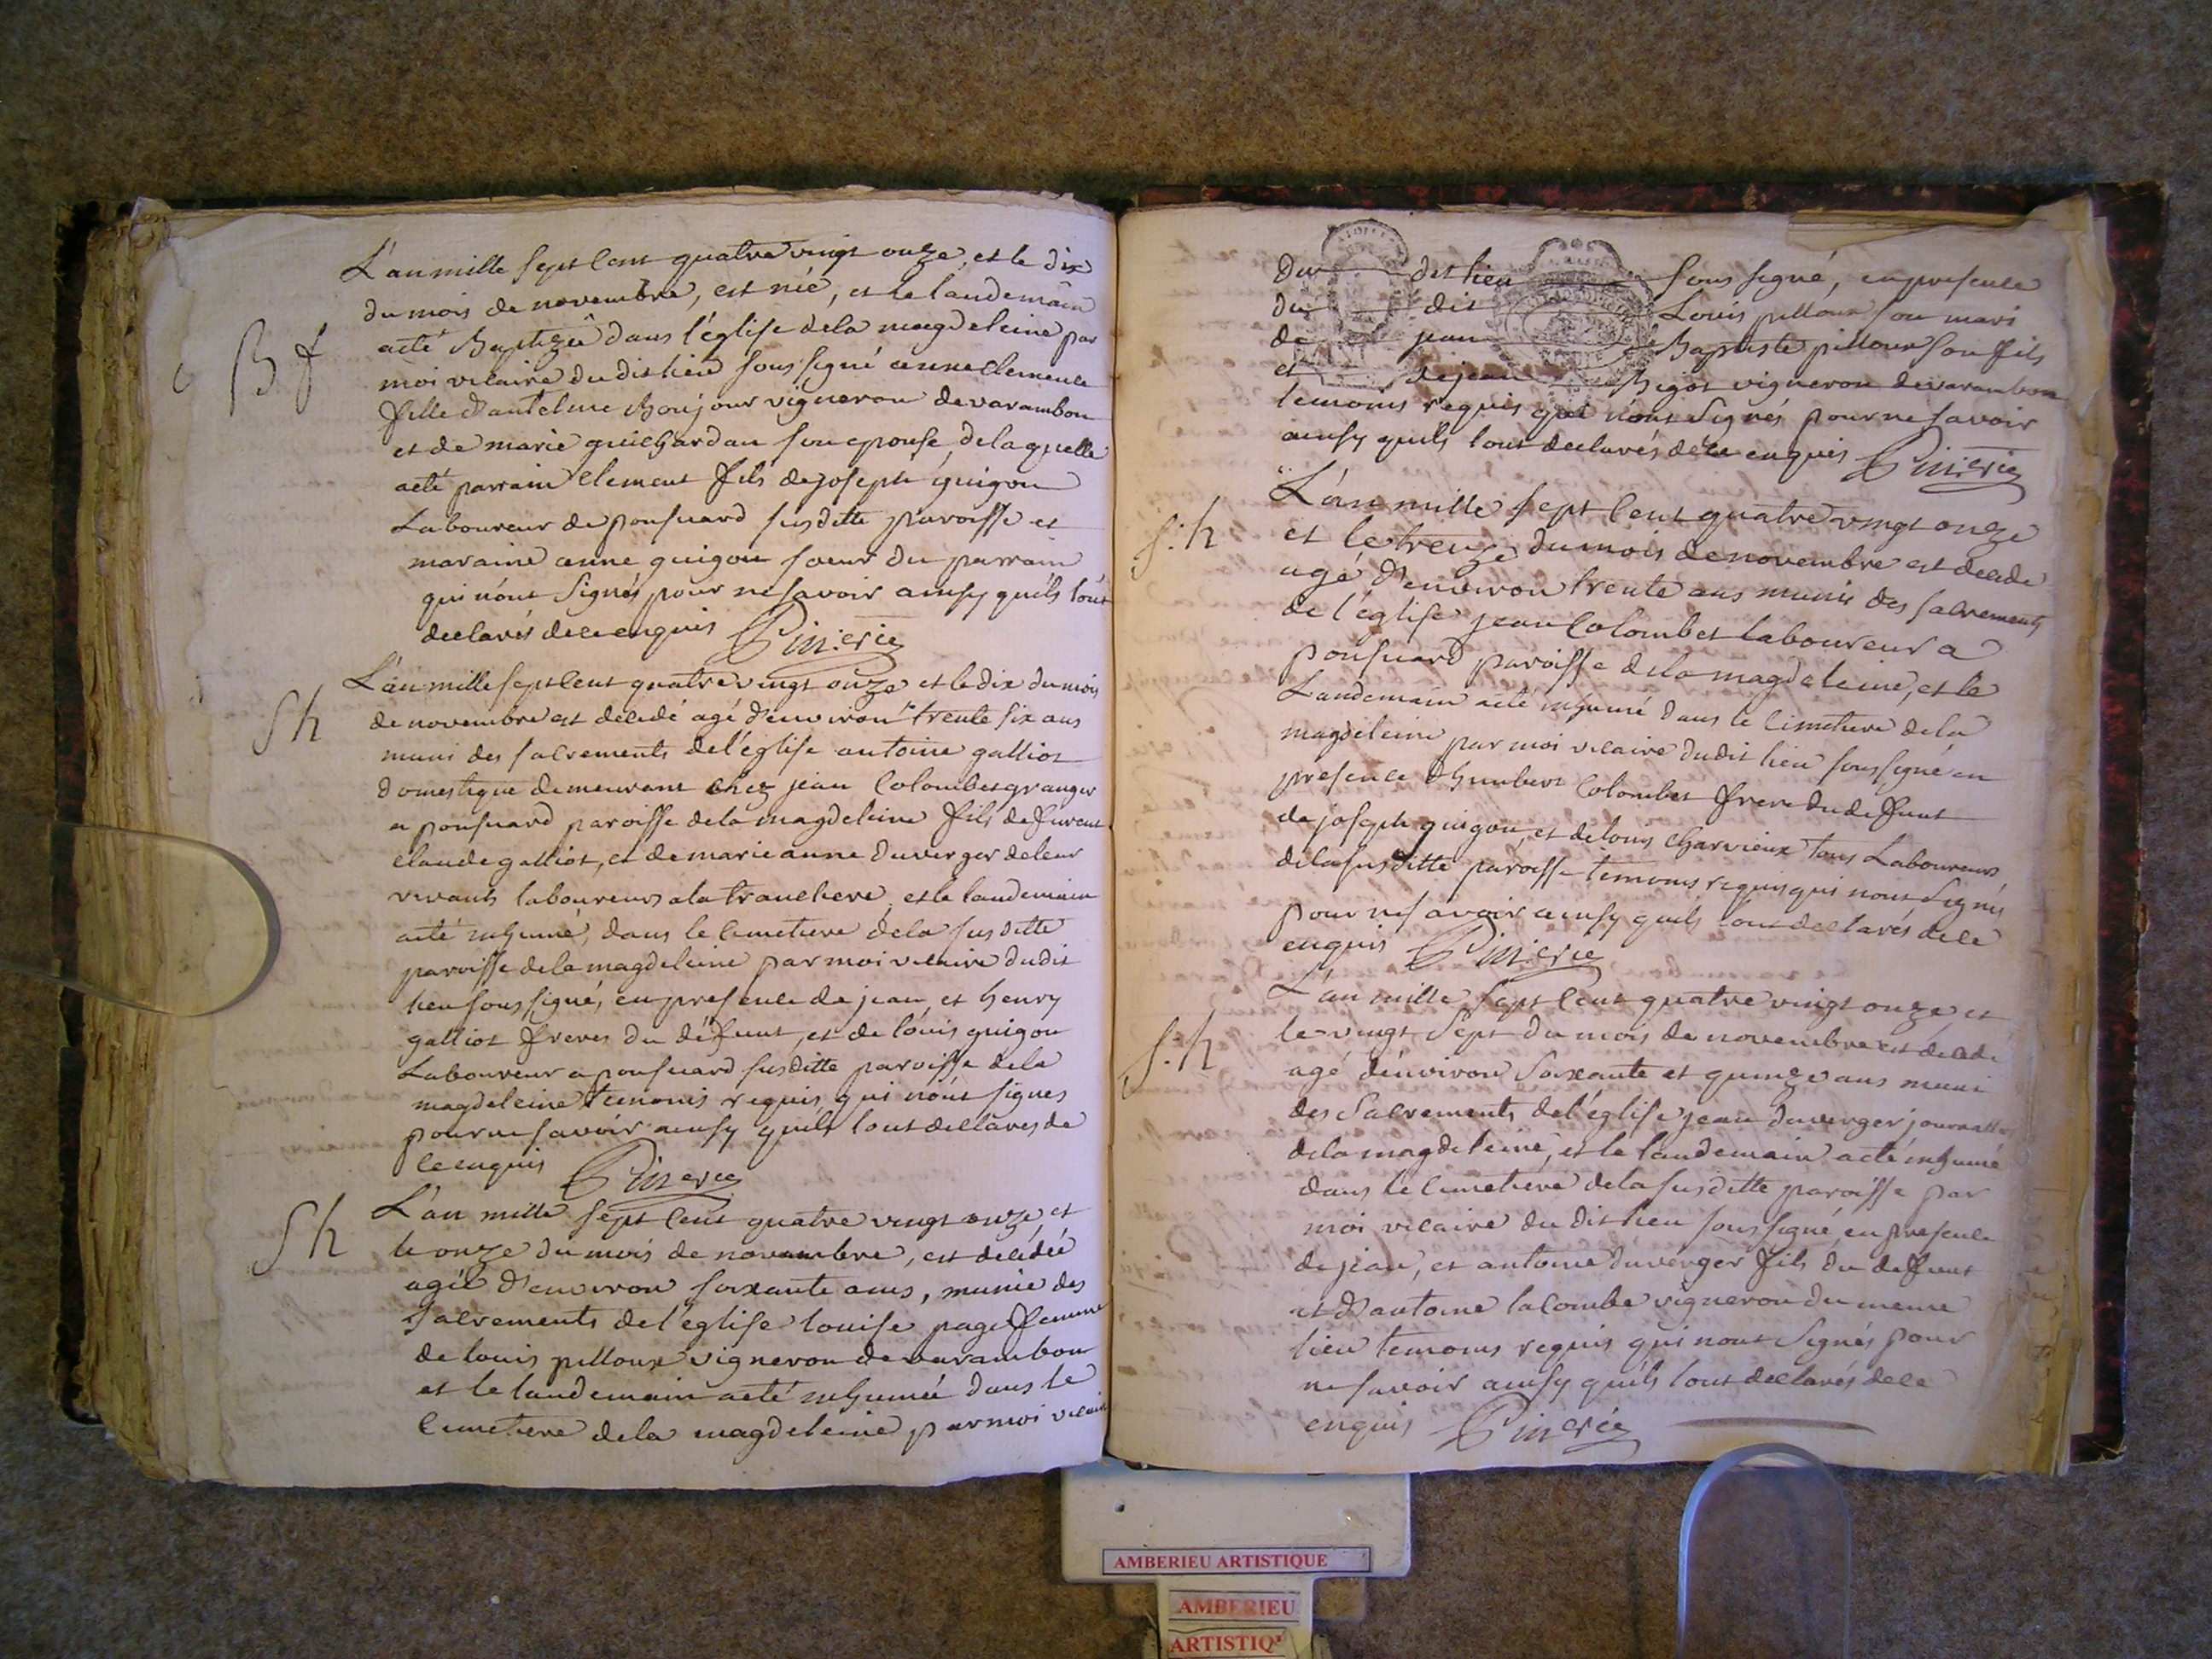 L'an mille sept cent quatre vingt onze, et le dix
du mois de novembre, est née, et le landemain
a eté Baptizée dans l'églife de la magdeleine par
B f
moi vicaire du dit lieu sous signé anne clemence
fille d'antelme Bonjour vigneron de varambon
et de marie guichardan son epouse, de laquelle
a eté parrain clement fils de joseph guigou
Laboureur de ponsuard susditte paroisse et
maraine anne guigou soeur du parrain
qui n'ont signés pour ne savoir ainsy quils l'ont
declarés de ce enquis
L'an mille sept cent quatre vingt onze et le dix du mois
Sh
de novembre est décedé agé d'environ trente six ans
muni des sacrements de l'église antoine galliot
domestique demeurant chez jean Colombet granger
a ponsuard paroisse de la magdeleine fils de furent
claude galliot, et de marie anne duverger de leur
vivants laboureurs a la tranchere, et le landemain
a eté inhumé, dans le cimetiere de la susditte
paroisse de la magdeleine par moi vicaire dudit
lieu sous signé, en presence de jean, et henry
galliot freres du défunt, et de louis guigou
Laboureur a ponsuard susditte paroisse de la
magdeleine temoins requis qui n'ont signes
pour ne savoir ainsy quils l'ont declares de
ce enquis
L'an mille sept cent quatre vingt onze et
Sh
le onze du mois de novembre, est decédée
agée d'environ soixante ans, munie des
sacrements de l'eglise louise page femme
de louis pilloux vigneron de varambon
et le landemain a eté inhumée dans le
cimetiere de la magdeleine par moi vicaire
du dit lieu sous signé, en presence
du dit Louis pilloux son mari
de jean Baptiste pilloux son fils
et de jean Bigot vigneron de varambon
temoins requis qui n'ont signés pour ne savoir
ainsy quils l'ont declarés de ce enquis
L'an mille sept cent quatre vingt onze
S.h
et le treuze du mois de novembre est decede
agé d'environ trente ans munis des sacrements
de l'église jean Colombet laboureur a
ponsuard paroisse de la magdeleine, et le
Landemain a eté inhumé dans le cimetiere de la
magdeleine par moi vicaire dudit lieu soussigné en
presence d'humbert Colombet frere du defunt
de joseph guigou, et de louis charvieux tous Laboureurs
de la susditte paroisse temoins requis qui n'ont signés
pour ne savoir ainsy quils l'ont declarés de ce
enquis
L'an mille sept cent quatre vingt onze et
S.h
le vingt sept du mois de novembre est décedé
agé d'environ soixante et quinze ans muni
des sacrements de l'église jean duverger
de la magdeleine, et le landemain a eté inhumé
dans le cimetiere de la susditte paroisse par
moi vicaire du dit lieu sous signé en presence
de jean, et antoine duverger fils du deffunt
et d'antoine lacombe vigneron du meme
lieu temoins requis qui n'ont signés pour
ne savoir ainsy quils l'ont declarés de ce
enquis
AMBERIEU ARTISTIQUE
AMBERIEU
ARTISTIQ